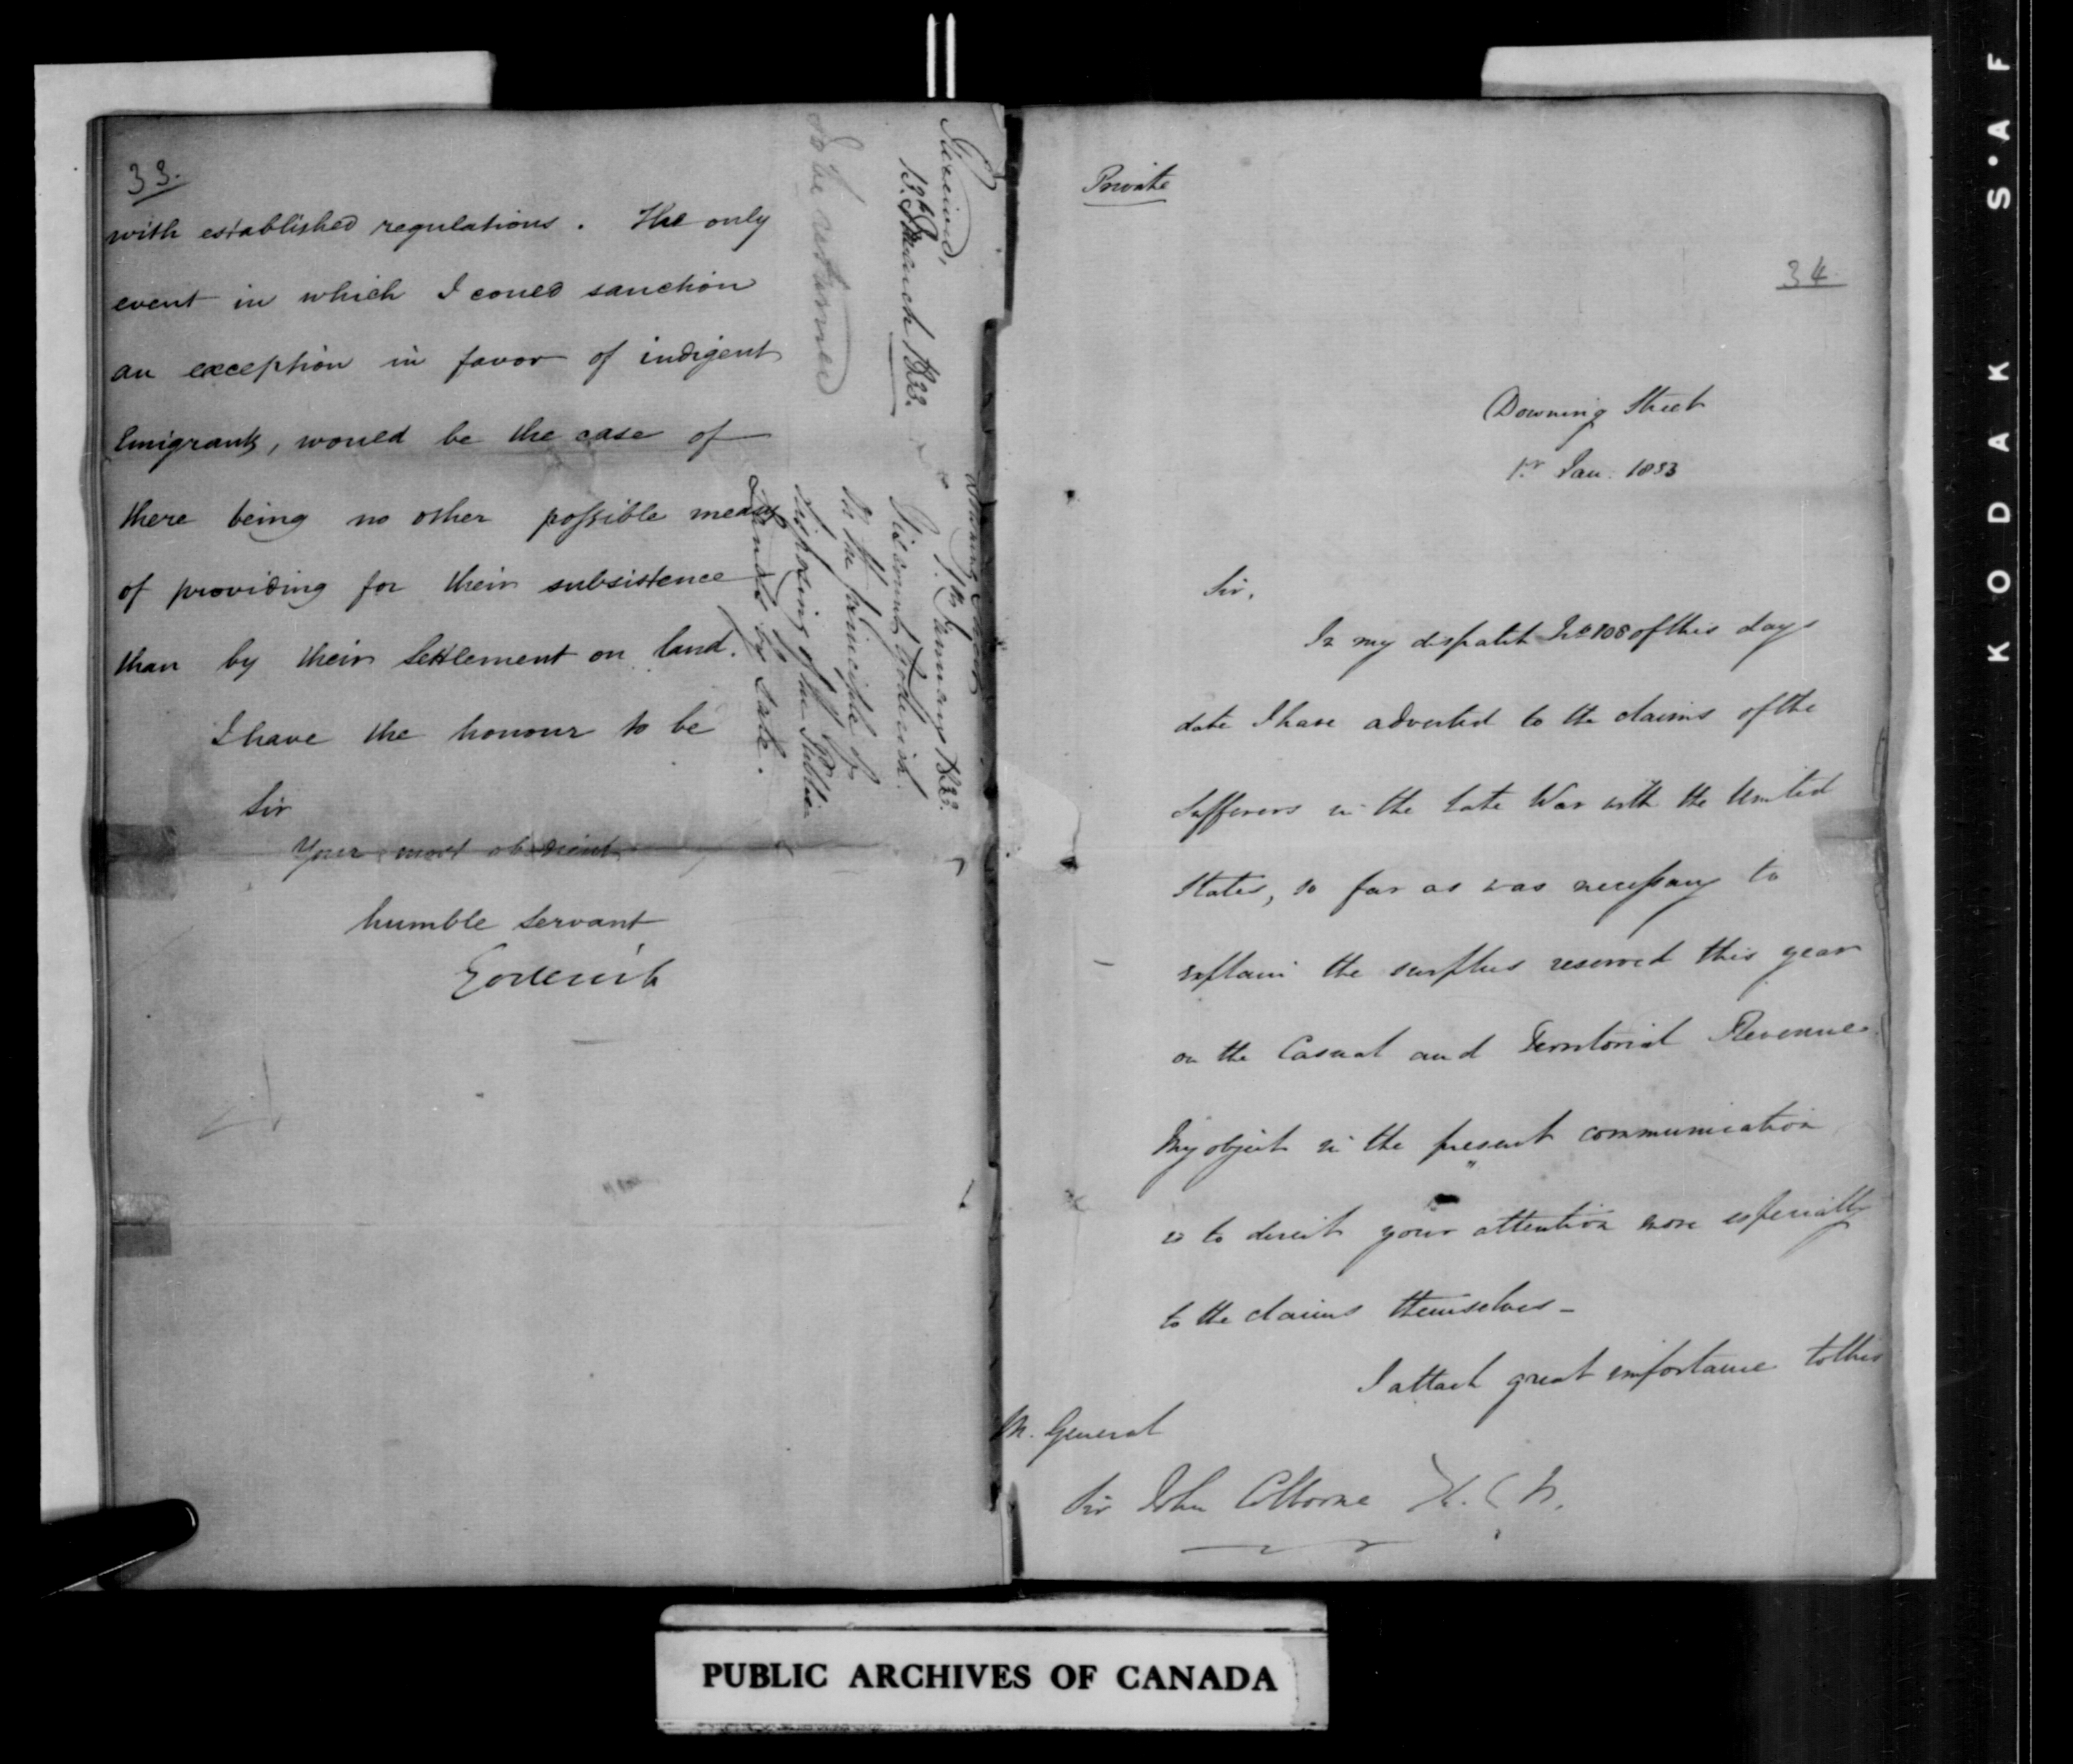 33.
with established regulations. The only
event in which I could sanction
an exception in favor of indigent
Emigrants, would be the case of
there being no other possible means
of providing for their subsistence
than by their settlement on land.
I have the honour to be
Sir
Your most obedient
humble servant
Goderich
Received,
13th March 1833.
To be returned
Downing Street
7th January 1833.
Viscount Goderich.
As the principle of
disposing of the Public
Lands by Sale.
Private
34
Downing Street
1st Jan: 1833
Sir,
In my dispatch No 108 of this days
date I have adverted to the claims of the
Sufferers in the late War with the United
States, so far as was necessary to
explain the surplus reserved this year
on the Casual and Territorial Revenue.
My object in the present communication
is to direct your attention more especially
to the claims themselves -
I attach great importance to this
M. General
Sir John Colborne K.C.B.
PUBLIC ARCHIVES OF CANADA
KODAK S·AF